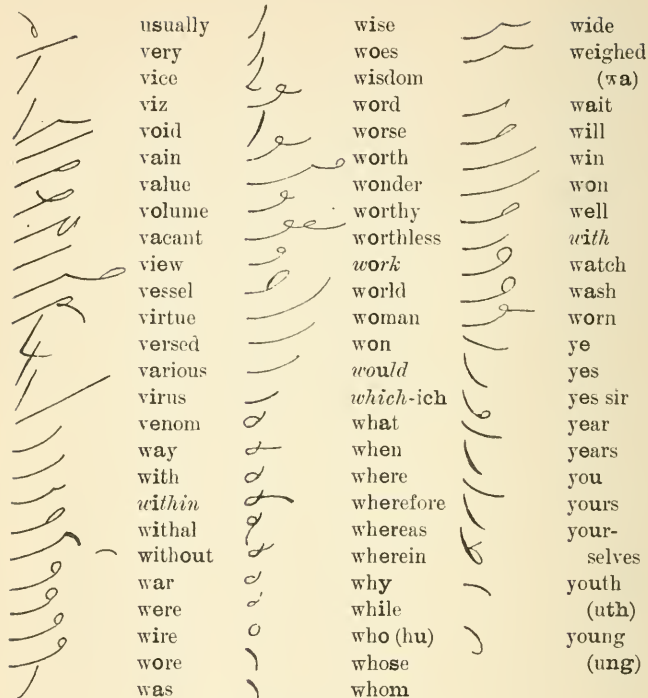 usually
very
vice
viz
void
vain
value
volume
vacant
view
vessel
virtue
versed
various
virus
venom
way
with
within
withal
without
war
were
wire
wore
was
wise
woes
wisdom
word
worse
worth
wonder
worthy
worthless
work
world
woman
won
would
which-ich
what
when
where
wherefore
whereas
wherein
why
while
who (hu)
whose
whom
wide
weighed
(wa)
wait
will
win
won
well
with
watch
wash
worn
ye
yes
yes sir
year
years
you
yours
your-
selves
youth
(uth)
young
(ung)